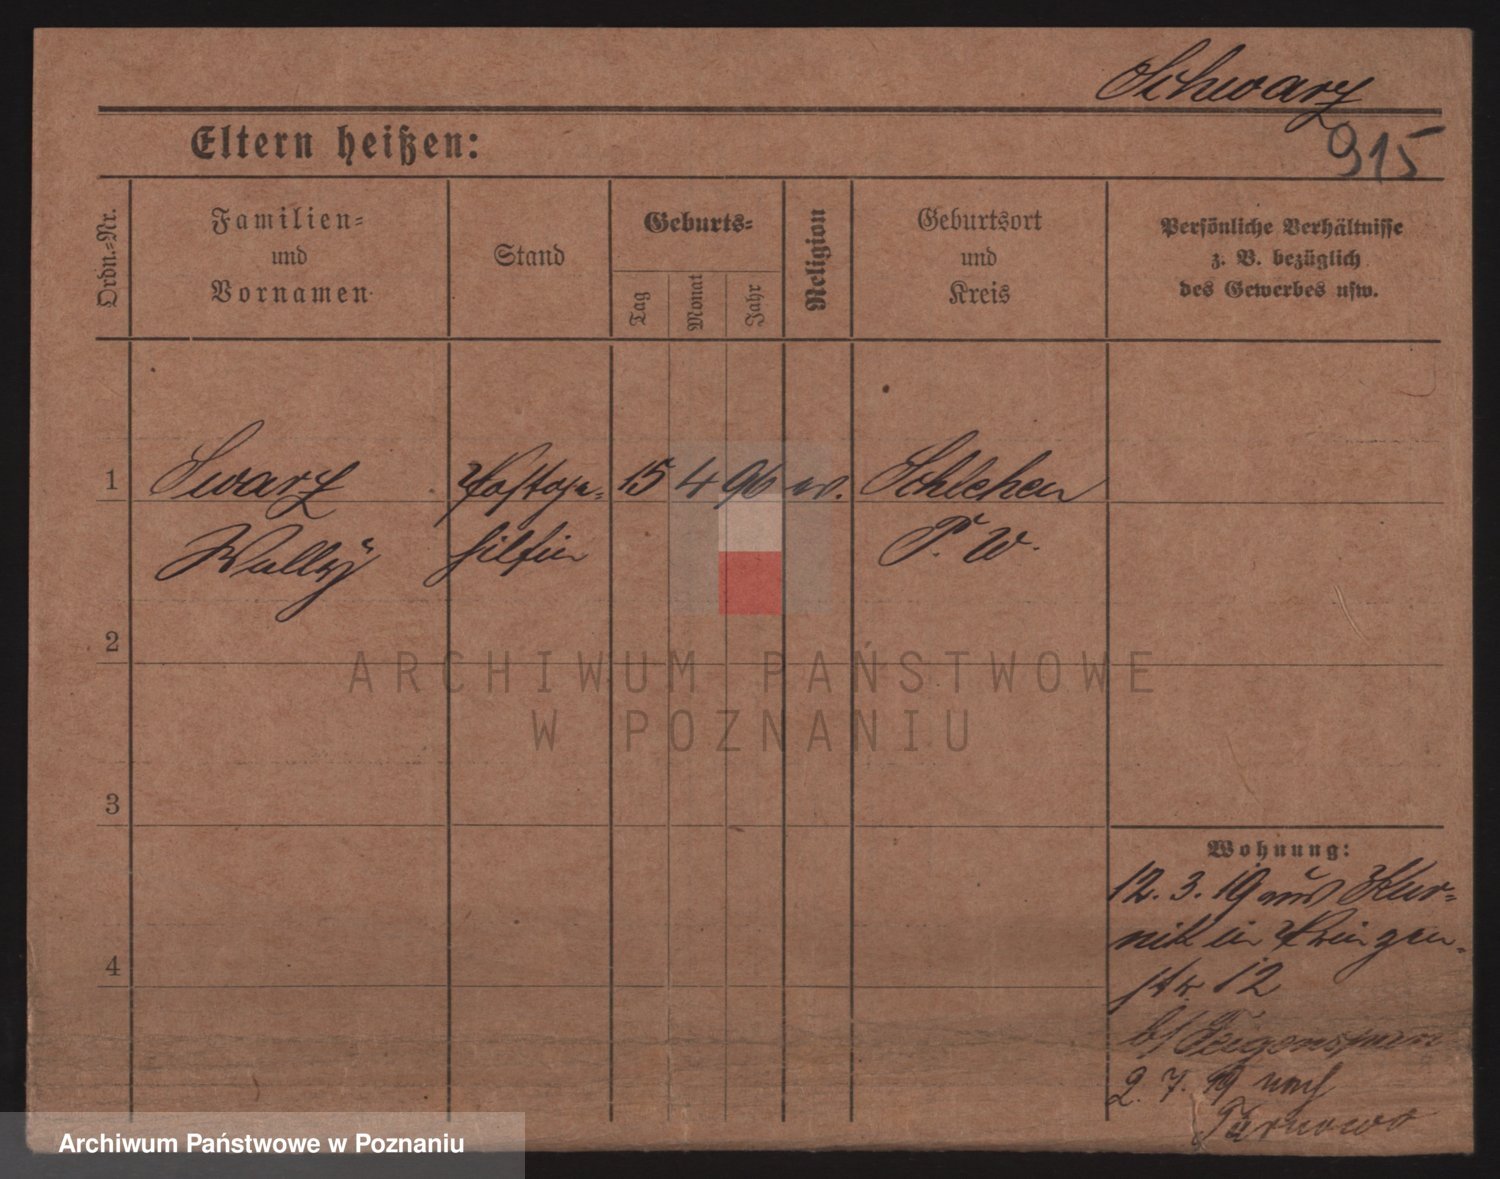 Schwarz
915
Eltern heißen:
Ordn.=Nr.
Familien=
und
Vornamen
Stand
Geburts=
Tag
Monat
Jahr
Religion
Geburtsort
und
Kreis
Persönliche Verhältnisse
z. B. bezüglich
des Gewerbes usw.
1
Swarz
Wally
Postge=
hilfin
15
4
96
ev.
Schlehen
P. W.
2
3
4
Wohnung:
12. 3. 19 aus Kur=
nik in Prinzen=
str. 12
b/
2. 7. 19 nach
Tarnowo
ARCHIWUM PAŃSTWOWE
W POZNANIU
Archiwum Państwowe w Poznaniu